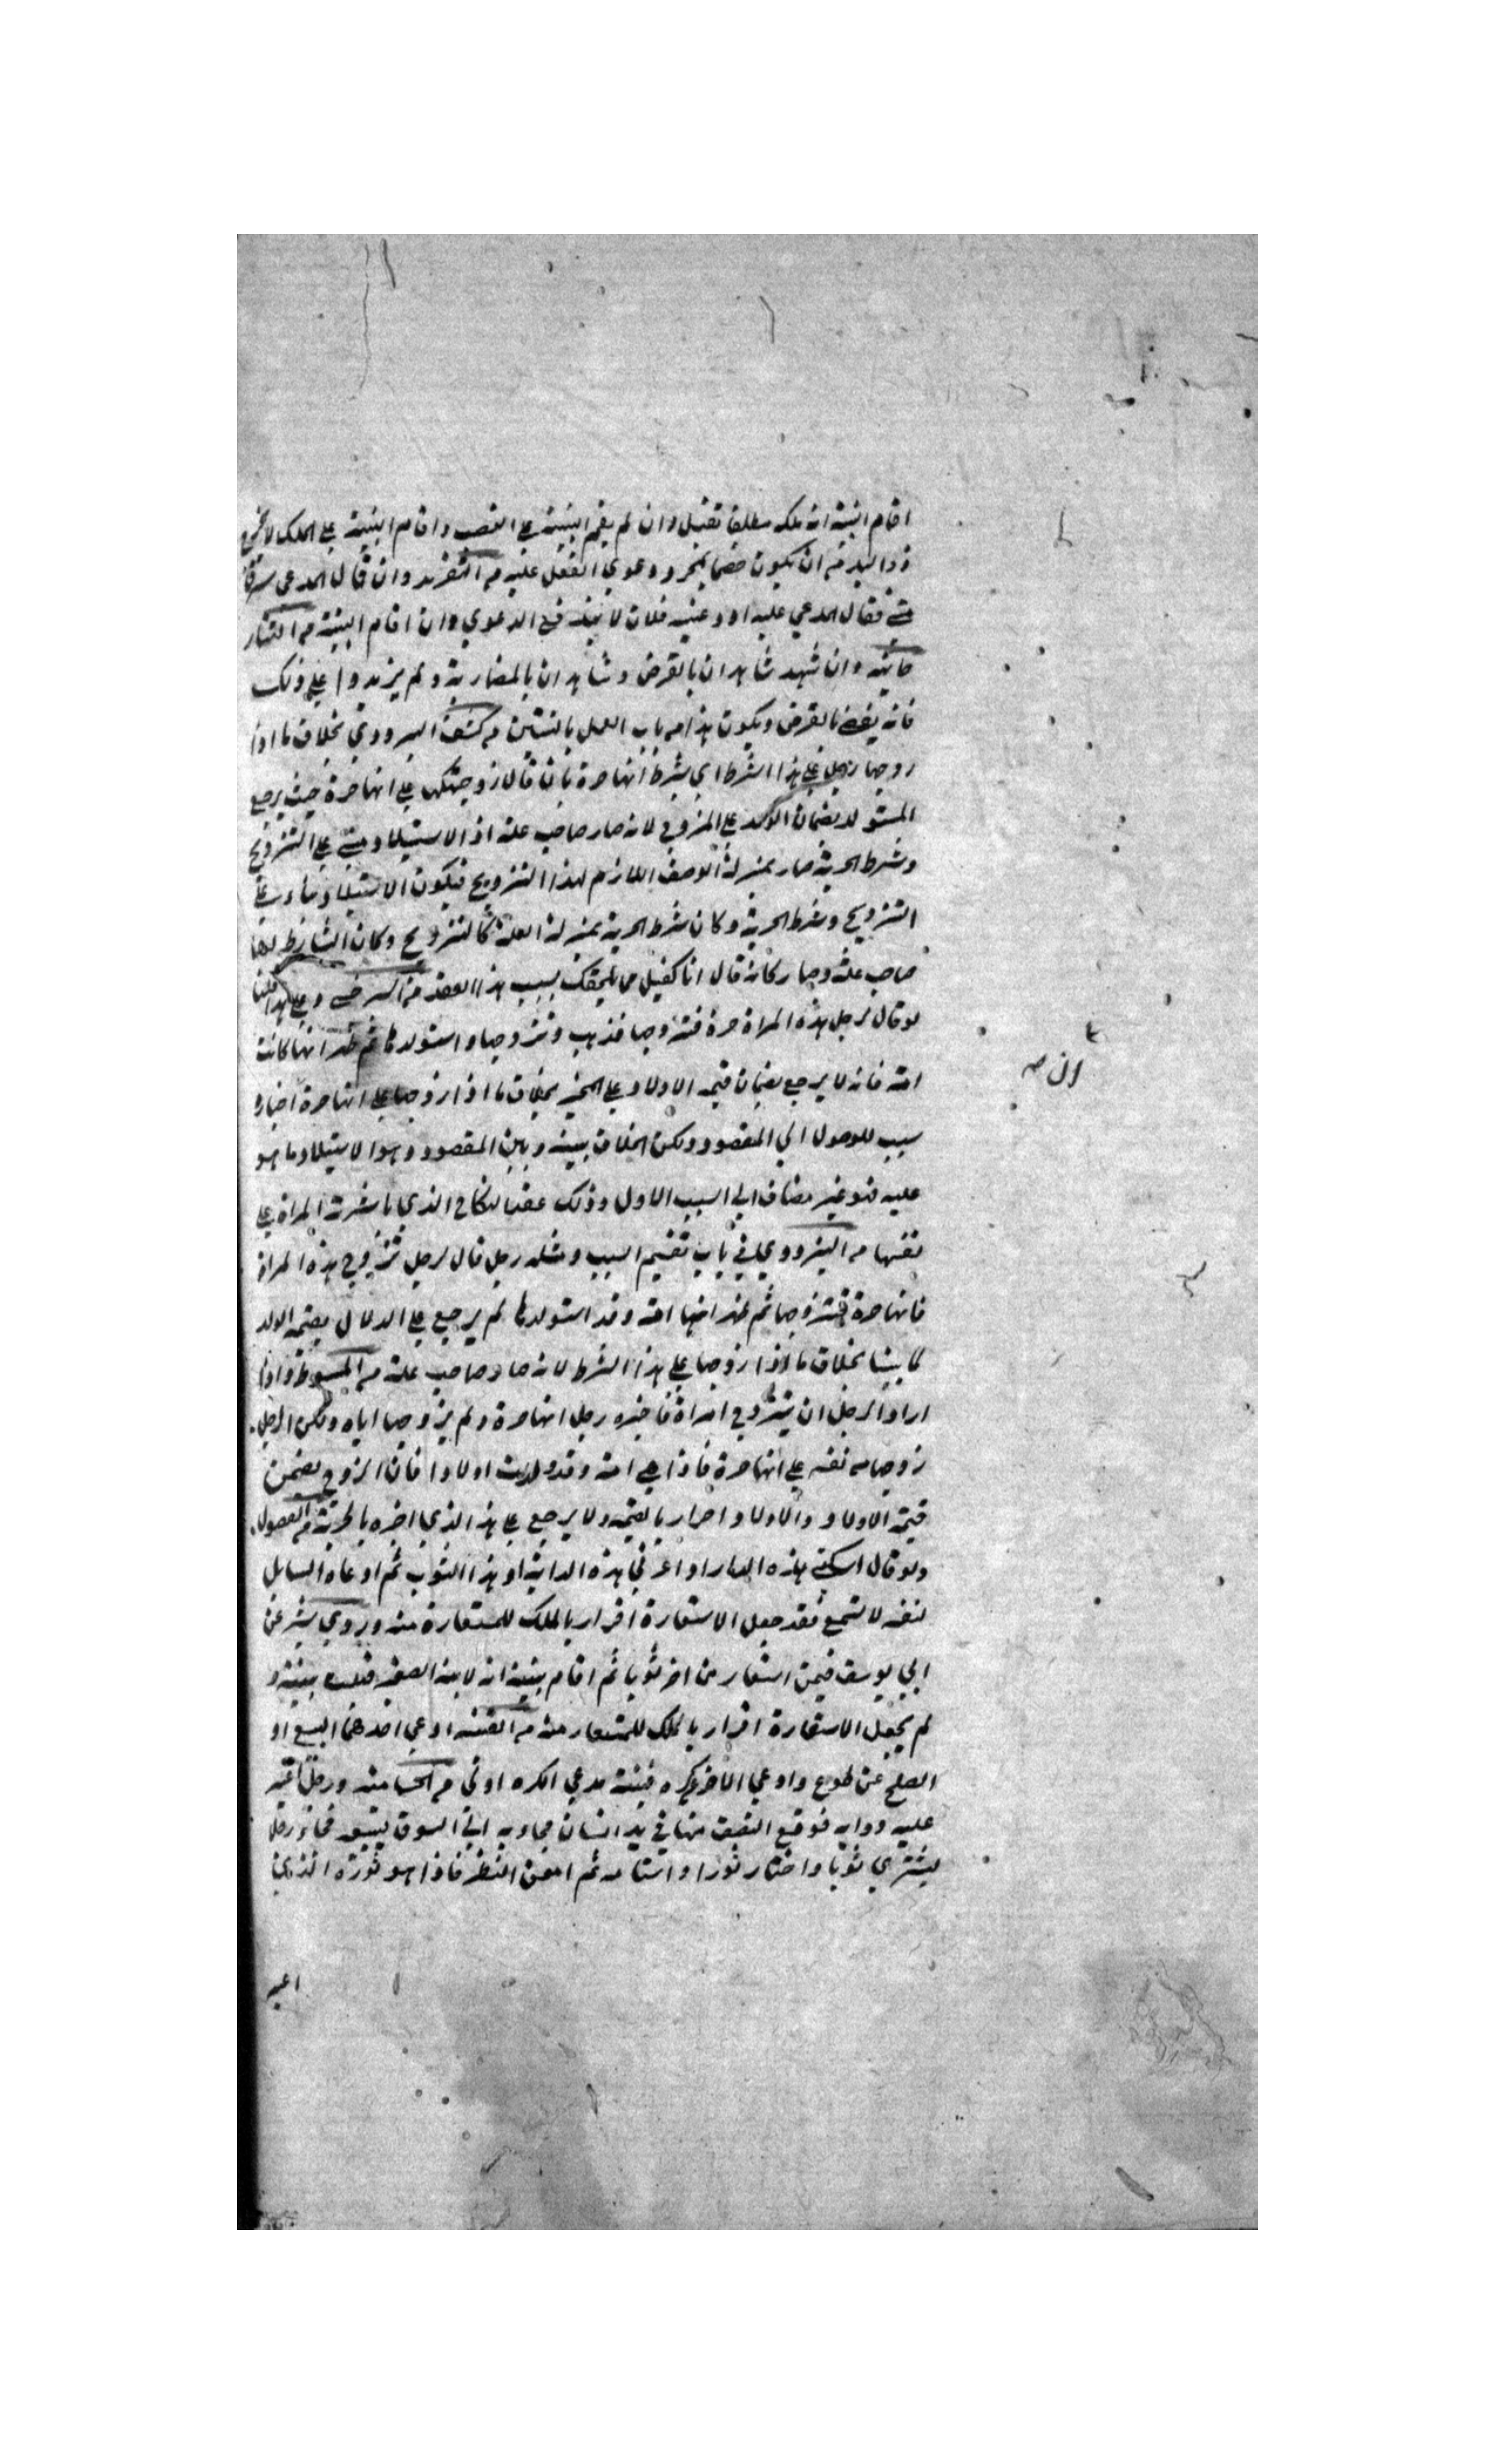 اقام البينة انه ملكه مطلقا تقبل وان لم يقم البينة على الغصب واقام البينة على الملك لا يخرج
ذو اليد من ان يكون خصما بمجرد دعوي الفعل عليه من التفريد وان قال المدعي سرق
مني فقال المدعي عليه اودعنيه فلان لا يندفع الدعوي وان اقام البينة من
خانيه وان شهد شاهدان بالقرض وشاهدان بالمضاربة ولم يزيدوا على ذلك
فانه يقضي بالقرض ويكون هذا من باب العمل بالبينتين من كشف البزدوي بخلاف ما اذا
زوجها رجل على هذا الشرط اي بشرط انها حرة بان قال زوجتكها على انها حرة حيث يرجع
المستولد بضمان الولد على المزوج لانه صار صاحب علة اذ الاستيلاد مبني على التزويج
وشرط الحرية صار بمنزلة الوصف اللازم لهذا التزويج فيكون الاستيلاد بناء على
التزويج وشرط الحرية وكان شرط الحرية بمنزلة العلة كالتزويج وكان الشارط لها
صاحب علة وصار كانه قال انا كفيل بما يلحقك بسبب هذا العقد من السرخسي وعلى هذا قلنا
لو قال لرجل هذه المراة حرة فتزوجها فذهب وتزوجها واستولدها ثم ظهر انها كانت
امة فانه لا يرجع بضمان قيمة الاولاد على المخبر بخلاف ما اذا زوجها على انها حرة اخباره
سبب للوصول الي المقصود ولكن الخلاف بينه وبين المقصود وهو الاستيلاد ما هو
عليه فهو غير مضاف الي السبب الاول وذلك عقد النكاح الذي باشرته المراة على
نفسها من البزدوي في باب تقسيم السبب ومثله رجل قال لرجل تزوج هذه المراة
فانها حرة فتزوجها ثم ظهر انها امة وقد استولدها لم يرجع على الدلال بقيمة الولد
لما بينا بخلاف ما اذا زوجها على هذا الشرط لانه صار صاحب علة من المبسوط واذا
اراد الرجل ان يتزوج امراة فاخبره رجل انها حرة ولم يزوجها اياه ولكن الرجل
زوجها من نفسه على انها حرة فاذا هي امة وقد ولدت اولادا فان الزوج يضمن
قيمة الاولاد والاولاد احرار بالقيمة ولا يرجع على هذا الذي اخبره بالحرية من الفصول
ولو قال اسكني هذه الدار او اعرني هذه الدابة او هذا الثوب ثم ادعاه السايل
لنفسه لا تسمع فقد جعل الاستعارة اقرار بالملك للمستعارة منه وروي بشر عن
ابي يوسف فيمن استعار من اخر ثوبا ثم اقام بينة انه لابنه الصغير قبلت بينته و
لم يجعل الاستعارة اقرار بالملك للمستعار منه من القنية ادعي احدهما البيع او
الصلح عن طوع وادعي الاخر كره فبينة مدعي الكره اولي من رجل اغير
عليه دوابه فوقع البعض منها في يد انسان فجاء به الي السوق ليبيعه فجاء رجل
ليشتري ثوبا واختار ثورا واستامه ثم امعن النظر فاذا هو ثوره الذي
اغير
ان صـ